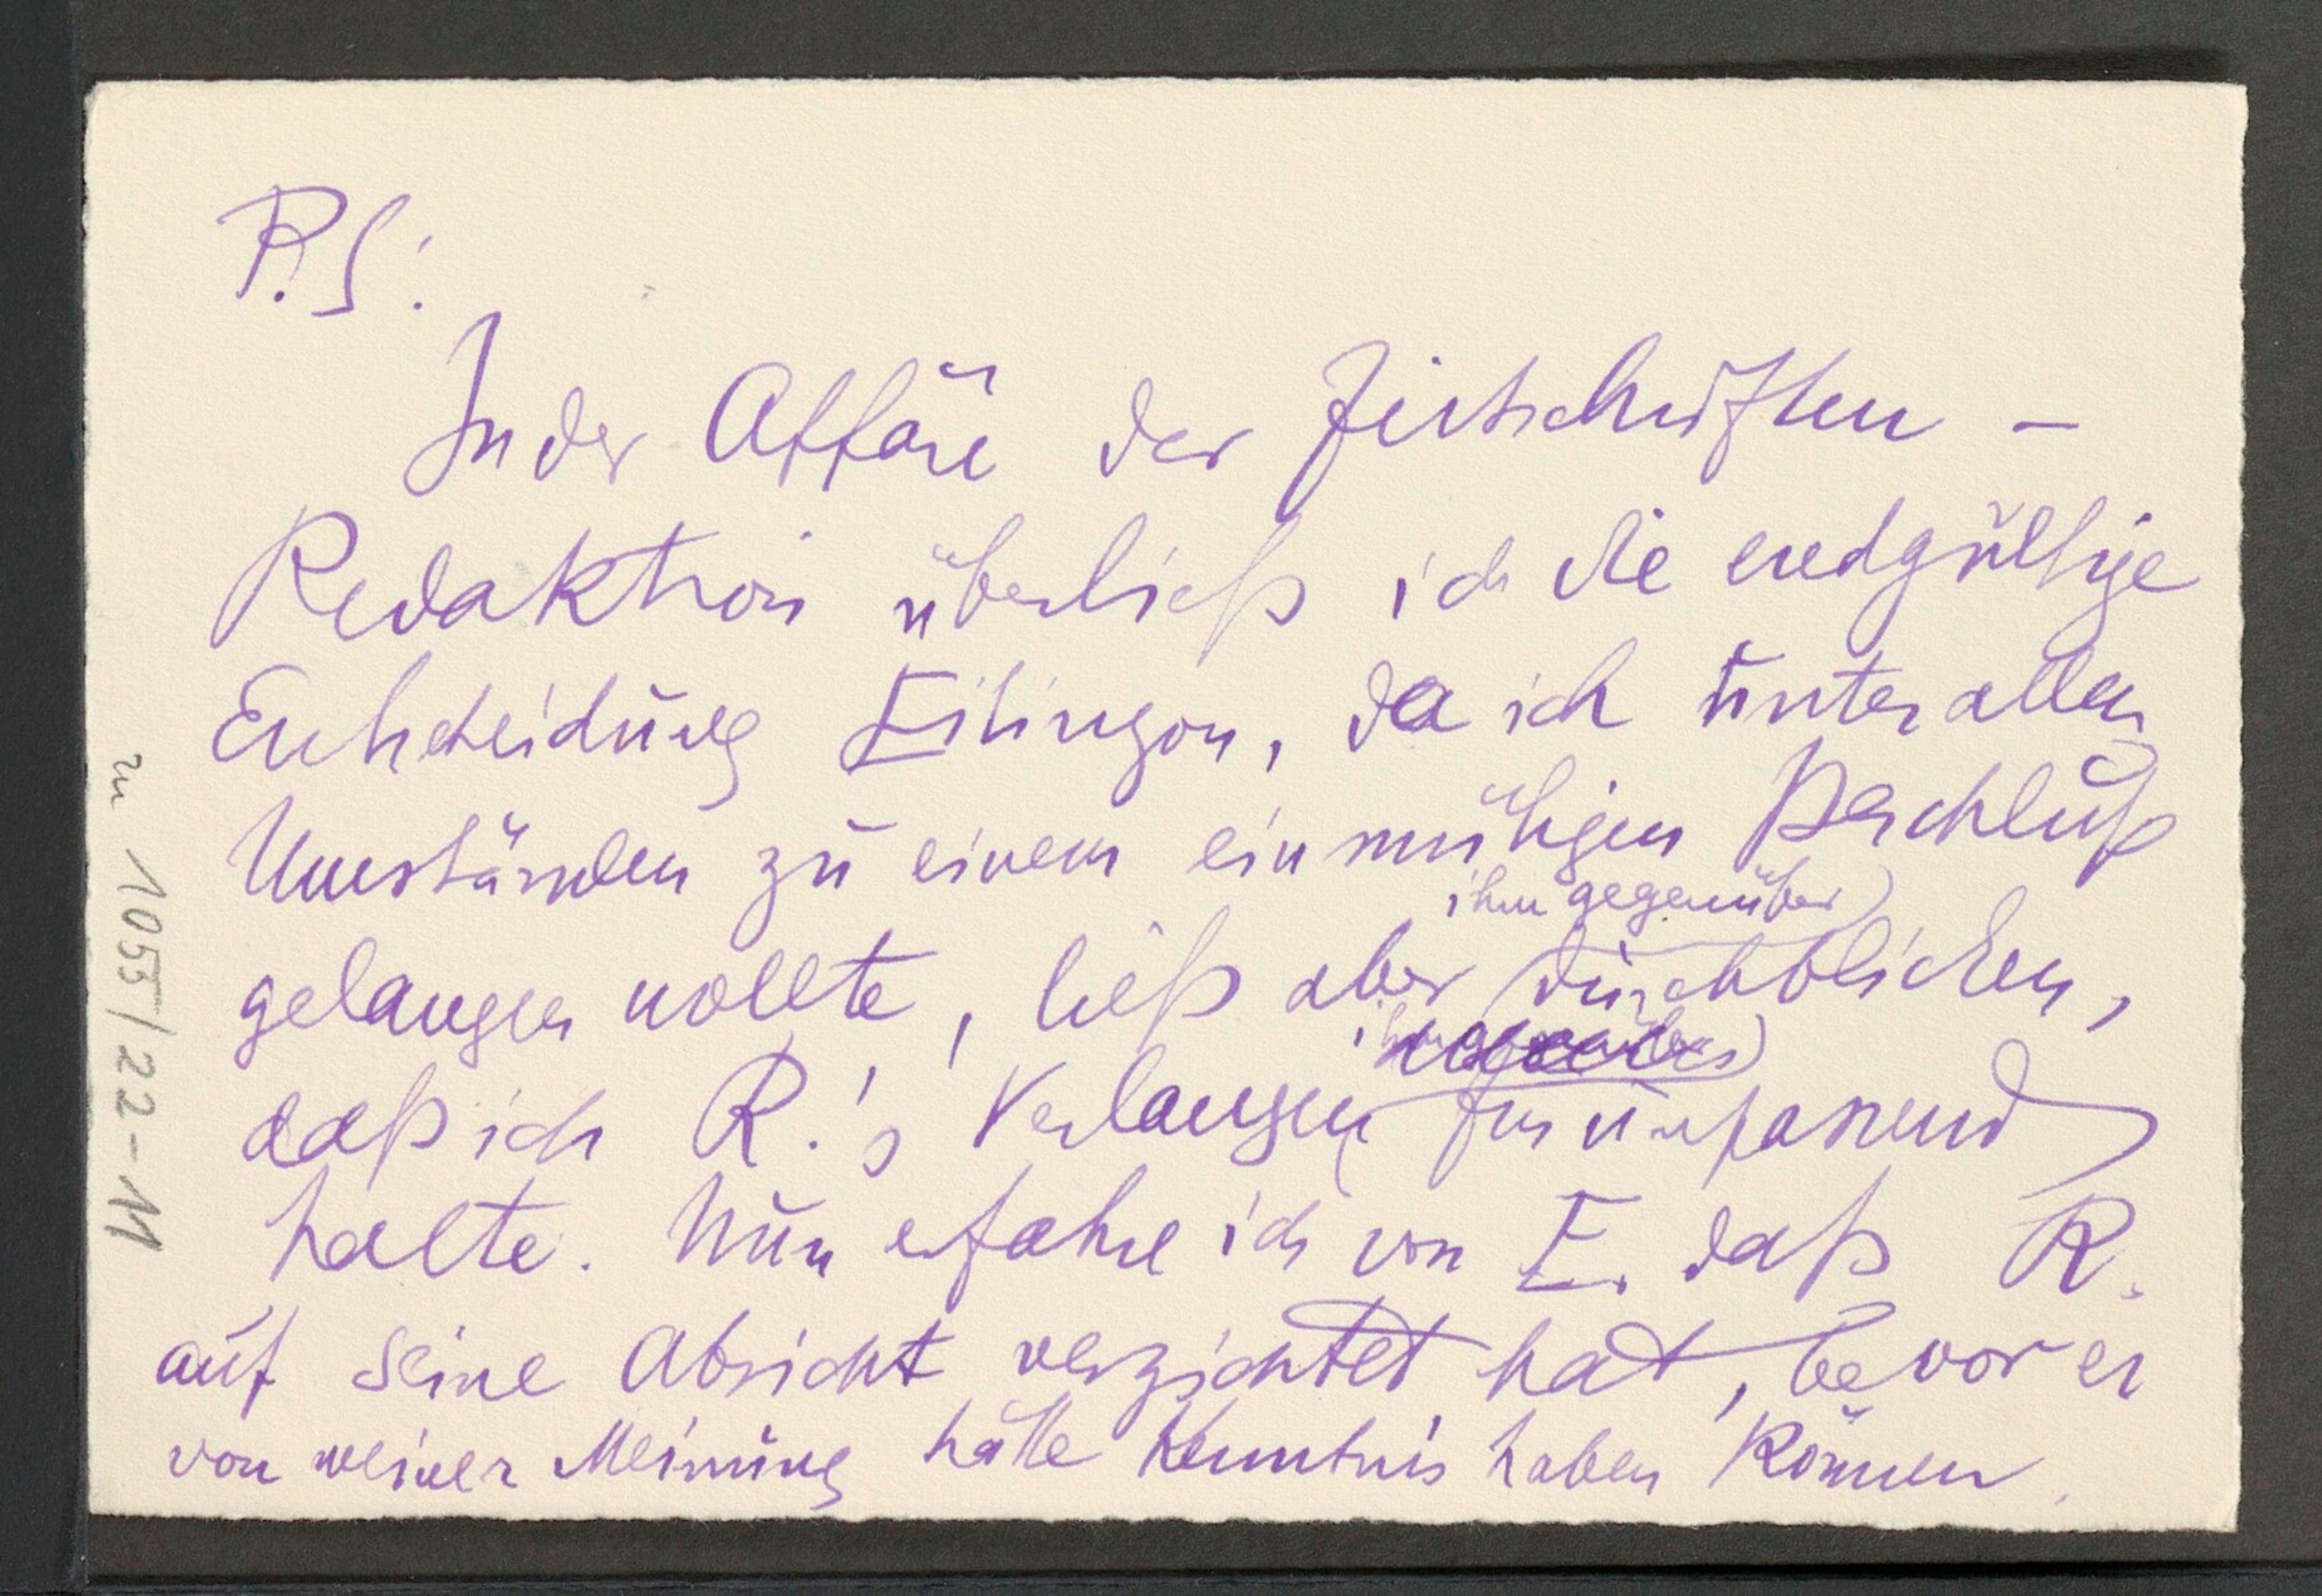 P.S.:
In der Affäre der Zeitschriften –
Redaktion überließ ich die endgültige
Entscheidung Eitingon, da ich unter allen
Umständen zu einem einmütigen Beschluß
ihm gegenüber
gelangen wollte, ließ aber durchblicken,
daß ich R.'s Verlangen für unpassend
halte. Nun erfahre ich von E. daß R.
auf seine Absicht verzichtet hat, bevor er
von meiner Meinung hätte Kenntnis haben können.
zu 1055/22-11